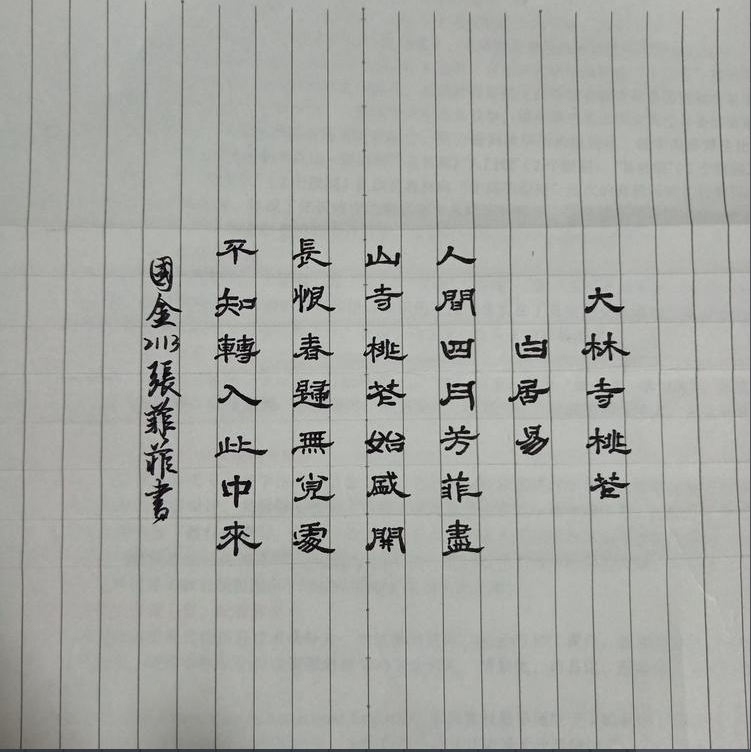 大林寺桃花
白居易
人間四月芳菲盡
山寺桃花始盛開
長恨春歸無覓處
不知轉入此中來
國金2113張菲菲書